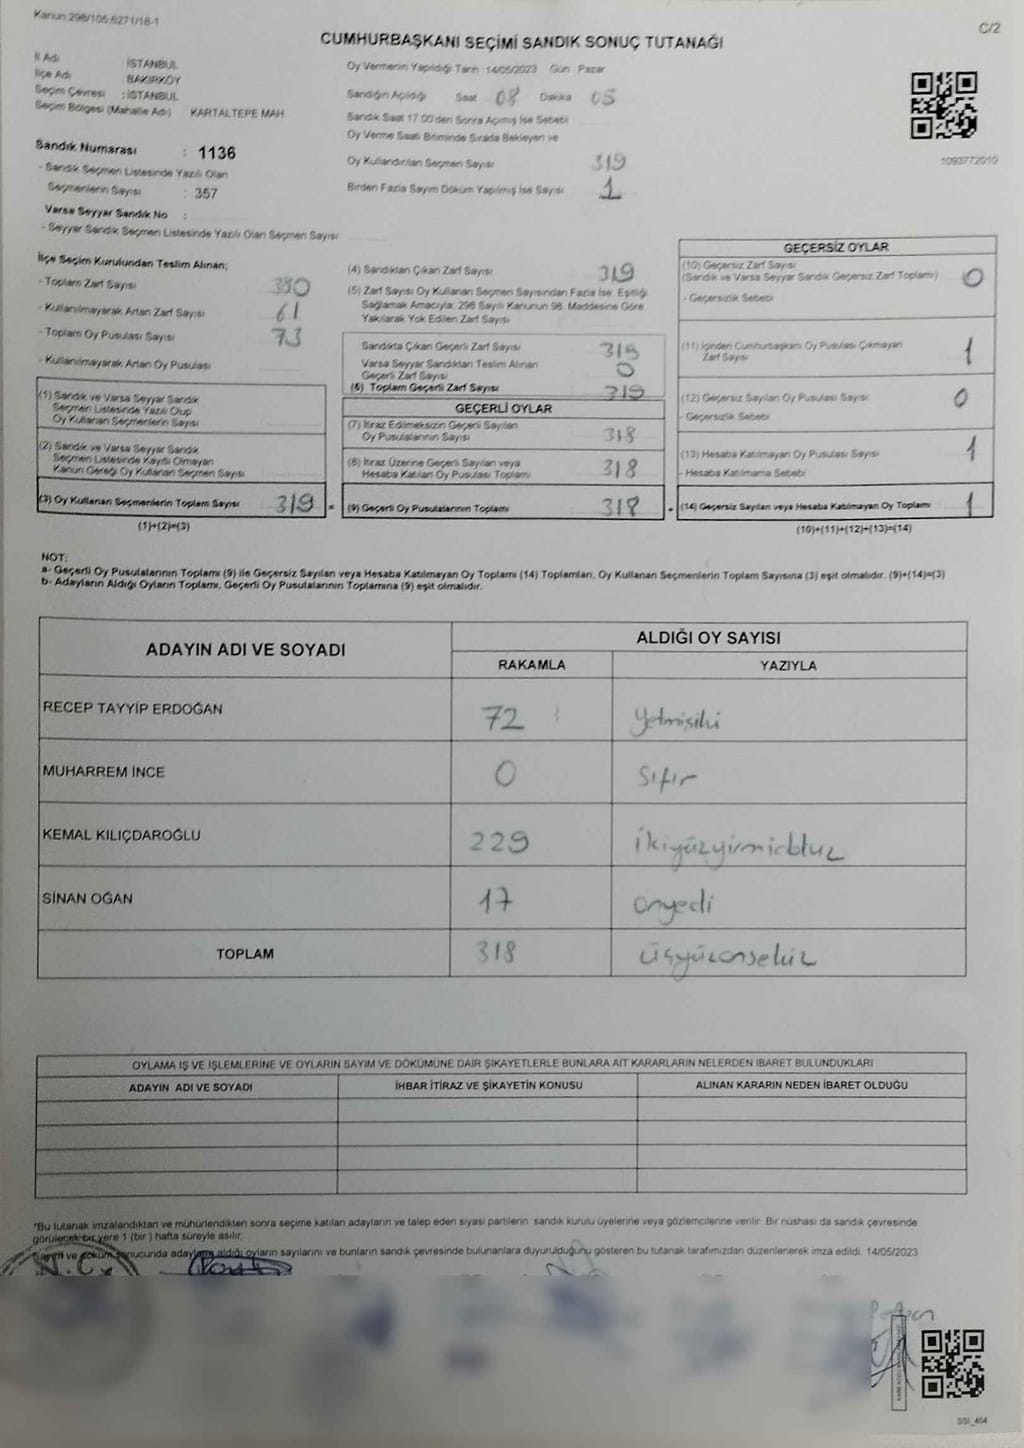 Kanun:298/105,6271/18-1
C/2
CUMHURBAŞKANI SEÇİMİ SANDIK SONUÇ TUTANAĞI
İl Adı : İSTANBUL
İlçe Adı : BAKIRKÖY
Seçim Çevresi : İSTANBUL
Seçim Bölgesi (Mahalle Adı) KARTALTEPE MAH.
Sandık Numarası : 1136
- Sandık Seçmen Listesinde Yazılı Olan
Seçmenlerin Sayısı : 357
Varsa Seyyar Sandık No :
- Seyyar Sandık Seçmen Listesinde Yazılı Olan Seçmen Sayısı:
Oy Vermenin Yapıldığı Tarih: 14/05/2023 Gün : Pazar
Sandığın Açıldığı Saat 08 Dakika 05
Sandık Saat 17:00'den Sonra Açmış İse Sebebi
Oy Verme Saati Bitiminde Sırada Bekleyen ve
Oy Kullandırılan Seçmen Sayısı 319
Birden Fazla Sayım Döküm Yapılmış İse Sayısı 1
1093772010
İlçe Seçim Kurulundan Teslim Alınan;
- Toplam Zarf Sayısı 380
- Kullanılmayarak Artan Zarf Sayısı 61
- Toplam Oy Pusulası Sayısı 73
- Kullanılmayarak Artan Oy Pusulası
(1) Sandık ve Varsa Seyyar Sandık
Seçmen Listesinde Yazılı Olup
Oy Kullanan Seçmenlerin Sayısı
(2) Sandık ve Varsa Seyyar Sandık
Seçmen Listesinde Kayıtlı Olmayan
Kanun Gereği Oy Kullanan Seçmen Sayısı
(3) Oy Kullanan Seçmenlerin Toplam Sayısı 319 =
(1)+(2)=(3)
(4) Sandıktan Çıkan Zarf Sayısı 319
(5) Zarf Sayısı Oy Kullanan Seçmen Sayısından Fazla İse, Eşitliği
Sağlamak Amacıyla; 298 Sayılı Kanunun 98. Maddesine Göre
Yakılarak Yok Edilen Zarf Sayısı
Sandıkta Çıkan Geçerli Zarf Sayısı 319
Varsa Seyyar Sandıktan Teslim Alınan
Geçerli Zarf Sayısı 0
(6) Toplam Geçerli Zarf Sayısı 319
GEÇERLİ OYLAR
(7) İtiraz Edilmeksizin Geçerli Sayılan
Oy Pusulalarının Sayısı 318
(8) İtiraz Üzerine Geçerli Sayılan veya
Hesaba Katılan Oy Pusulası Toplamı 318
(9) Geçerli Oy Pusulalarının Toplamı 318 +
GEÇERSİZ OYLAR
(10) Geçersiz Zarf Sayısı
(Sandık ve Varsa Seyyar Sandık Geçersiz Zarf Toplamı) 0
- Geçersizlik Sebebi
(11) İçinden Cumhurbaşkanı Oy Pusulası Çıkmayan
Zarf Sayısı 1
(12) Geçersiz Sayılan Oy Pusulası Sayısı 0
- Geçersizlik Sebebi
(13) Hesaba Katılmayan Oy Pusulası Sayısı 1
- Hesaba Katılmama Sebebi
(14) Geçersiz Sayılan veya Hesaba Katılmayan Oy Toplamı 1
(10)+(11)+(12)+(13)=(14)
NOT:
a- Geçerli Oy Pusulalarının Toplamı (9) ile Geçersiz Sayılan veya Hesaba Katılmayan Oy Toplamı (14) Toplamları, Oy Kullanan Seçmenlerin Toplam Sayısına (3) eşit olmalıdır. (9)+(14)=(3)
b- Adayların Aldığı Oyların Toplamı, Geçerli Oy Pusulalarının Toplamına (9) eşit olmalıdır.
ADAYIN ADI VE SOYADI
ALDIĞI OY SAYISI
RAKAMLA YAZIYLA
RECEP TAYYİP ERDOĞAN 72 yetmişiki
MUHARREM İNCE 0 sıfır
KEMAL KILIÇDAROĞLU 229 ikiyüzyirmidokuz
SİNAN OĞAN 17 onyedi
TOPLAM 318 üçyüzonsekiz
OYLAMA İŞ VE İŞLEMLERİNE VE OYLARIN SAYIM VE DÖKÜMÜNE DAİR ŞİKAYETLERLE BUNLARA AİT KARARLARIN NELERDEN İBARET BULUNDUKLARI
ADAYIN ADI VE SOYADI İHBAR İTİRAZ VE ŞİKAYETİN KONUSU ALINAN KARARIN NEDEN İBARET OLDUĞU
*Bu tutanak imzalandıktan ve mühürlendikten sonra seçime katılan adayların ve talep eden siyasi partilerin sandık kurulu üyelerine veya gözlemcilerine verilir. Bir nüshası da sandık çevresinde
görülecek bir yere 1 (bir) hafta süreyle asılır.
Sayım ve döküm sonucunda adayların aldığı oyların sayılarını ve bunların sandık çevresinde bulunanlara duyurulduğunu gösteren bu tutanak tarafımızdan düzenlenerek imza edildi. 14/05/2023
SSI_404